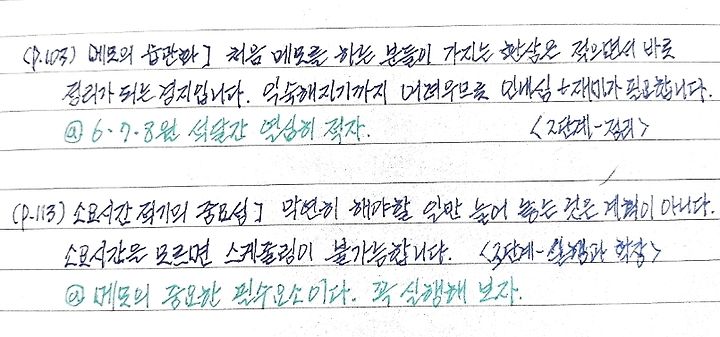 (P.103) 메모의 습관화] 처음 메모를 하는 분들이 가지는 환상은 적으면서 바로
정리가 되는 경지입니다. 익숙해지기까지 어려우므로 인내심+재미가 필요합니다.
@ 6·7·8월 석달간 열심히 적자. <2단계-정리>
(P.113) 소요시간 적기의 중요성] 막연히 해야할 일만 늘어 놓는 것은 계획이 아니다.
소요시간을 모르면 스케줄링이 불가능합니다. <3단계-실행과 확장>
@ 메모의 중요한 필수요소이다. 꼭 실행해 보자.